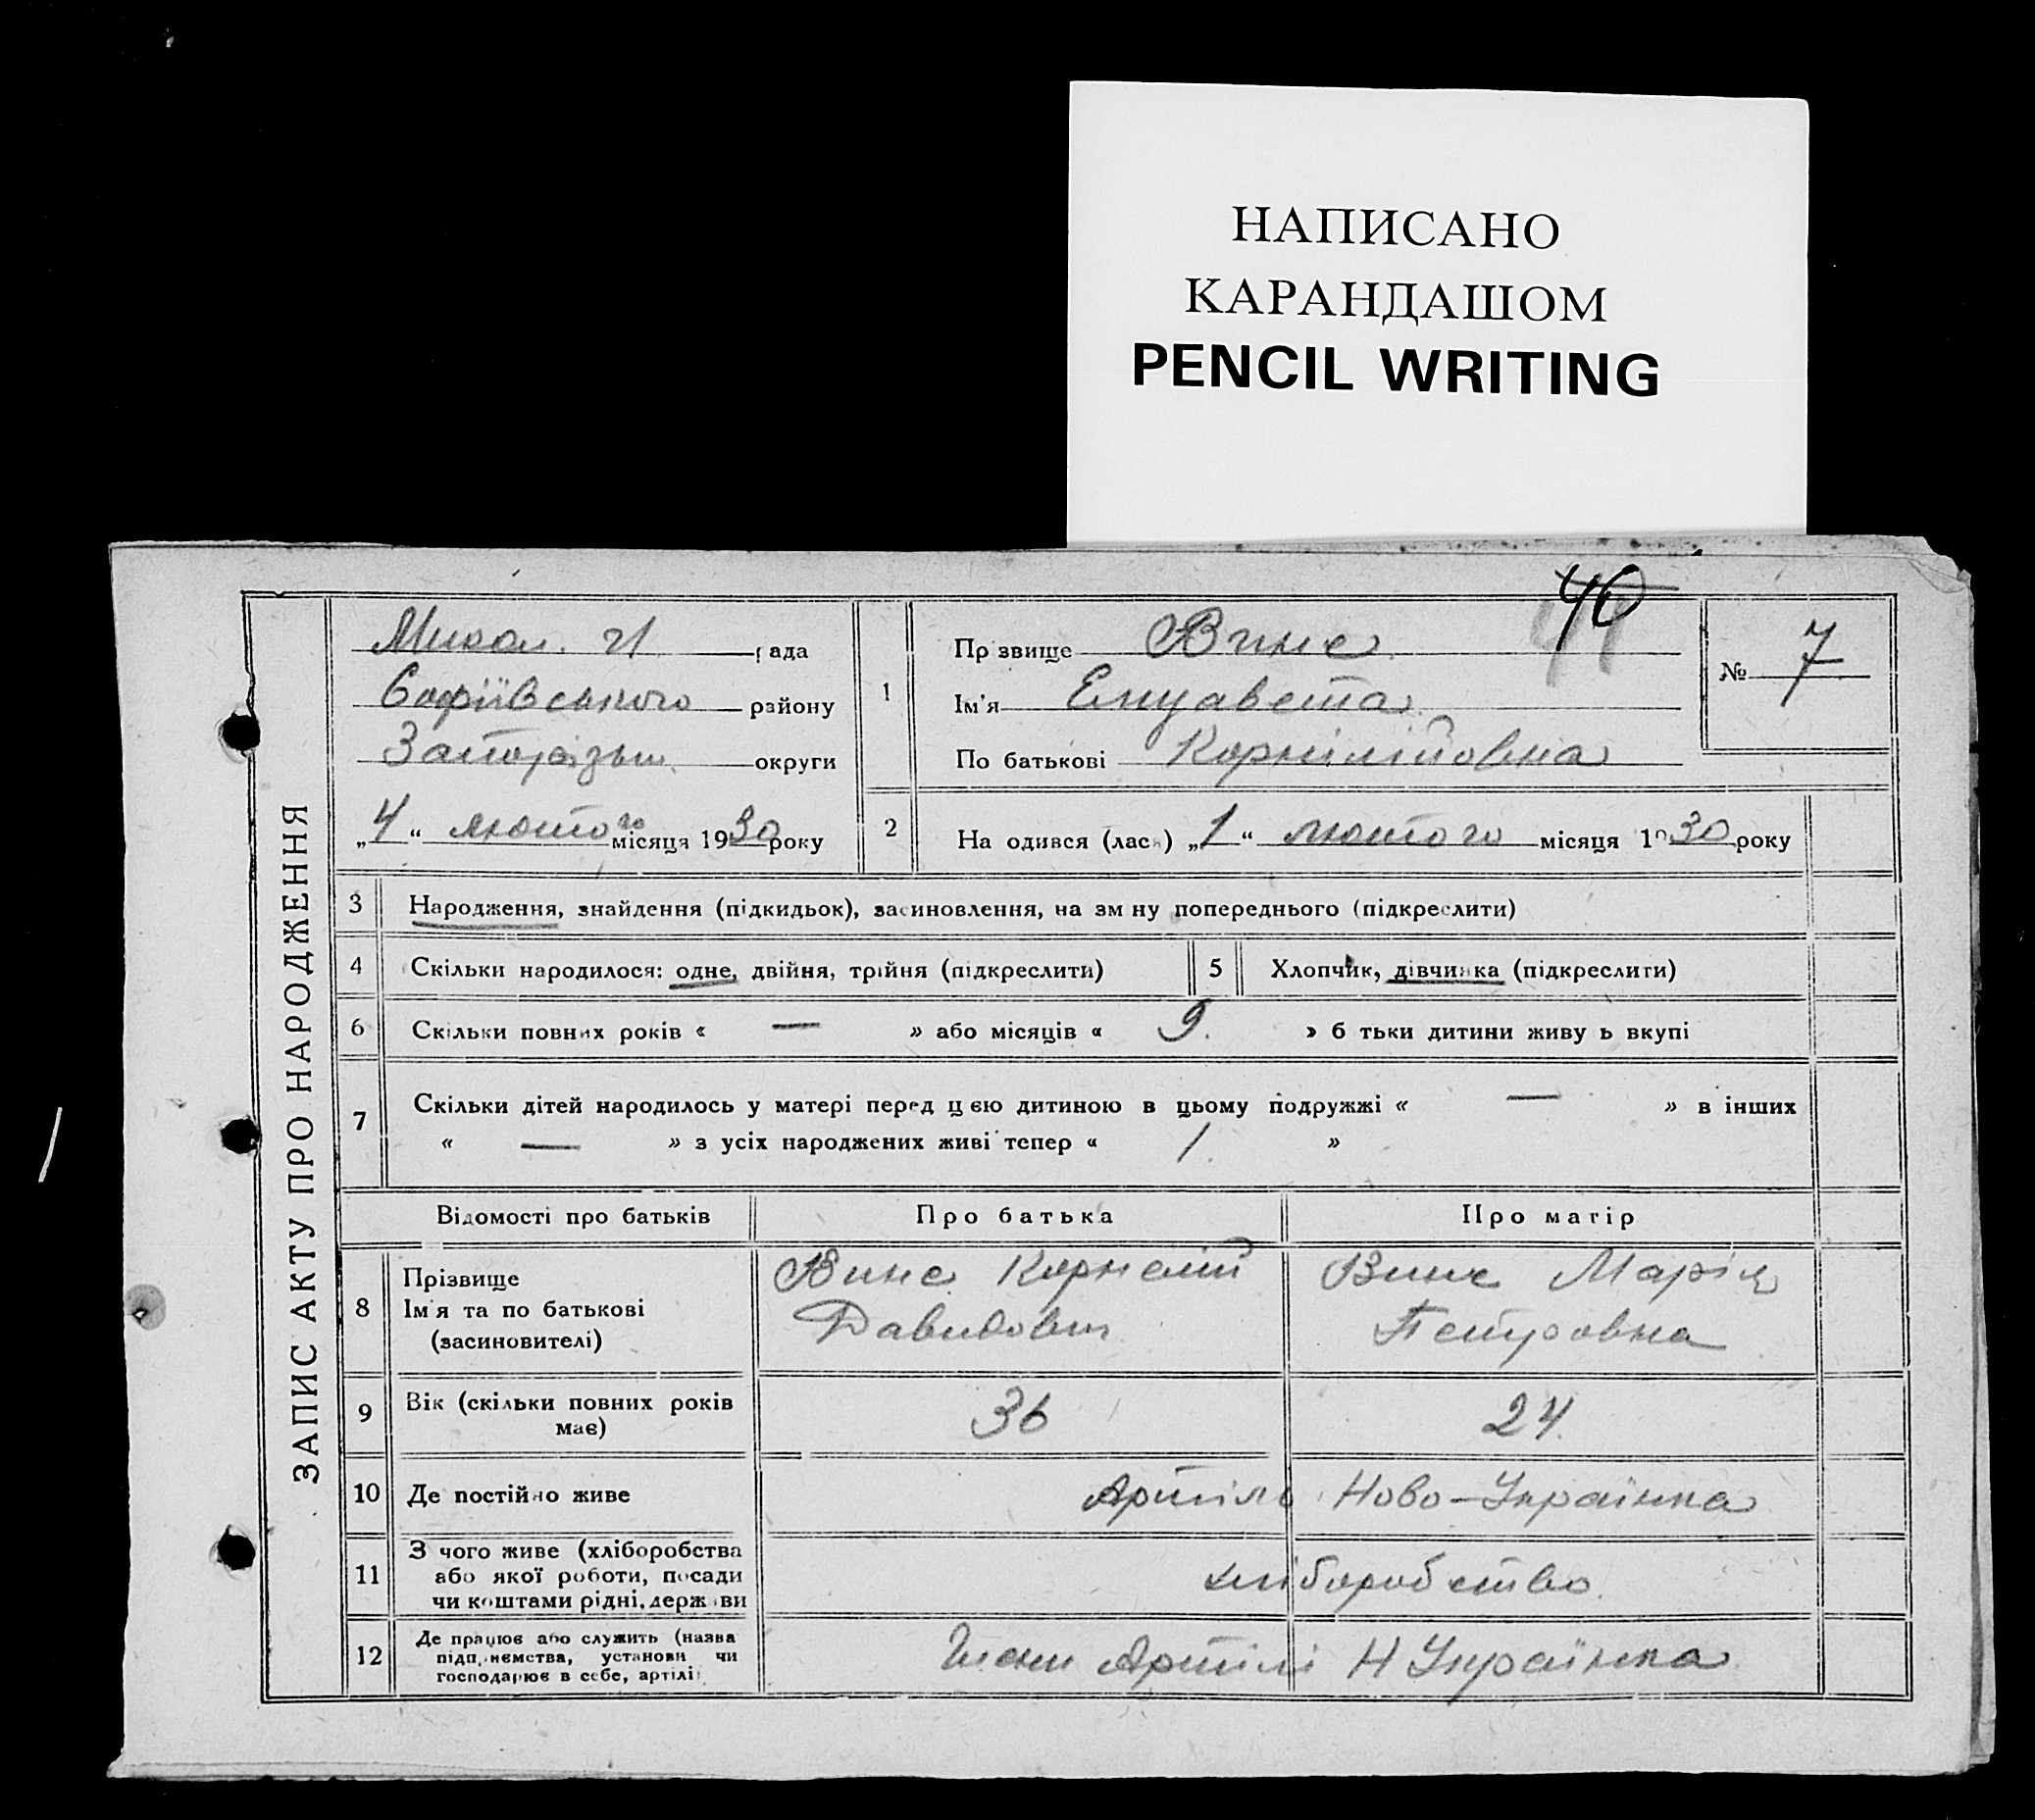 НАПИСАНО
КАРАНДАШОМ
PENCIL WRITING
40
ЗАПИС АКТУ ПРО НАРОДЖЕННЯ
Микол. рада
Софіївського району
округи
„4“ лютого місяця 1930 року
1
Прiзвище Винс
Ім'я Елизавета
По батькові Корнілійовна
№ 7
2 На одився (лася) „1“ лютого місяця 1930 року
3 Народження, знайдення (підкидьок), засиновлення, на зм ну попереднього (підкреслити)
4 Скільки народилося: одне, двійня, трійня (підкреслити) 5 Хлопчик, дівчинка (підкреслити)
6 Скільки повних років « — » або місяців « 9. » б тьки дитини живу ь вкупі
7 Скільки дітей народилось у матері перед цією дитиною в цьому подружжі « — » в інших
« — » з усіх народжених живі тепер « 1. »
Відомості про батьків Про батька Про матір
8 Прізвище
Ім'я та по батькові
(засиновителі)
Винс Корнелій
Давидович
Винс Марія
Петровна
9 Вік (скільки повних років
має)
36 24.
10 Де постійно живе Артіль Ново-Українка
11 З чого живе (хліборобства
або якої роботи, посади
чи коштами рідні, держ ви
хліборобство
12 Де працює або служить (назва
підп,иємства, установи чи
господарює в себе, артілі)
Члени Артілі Н Українка